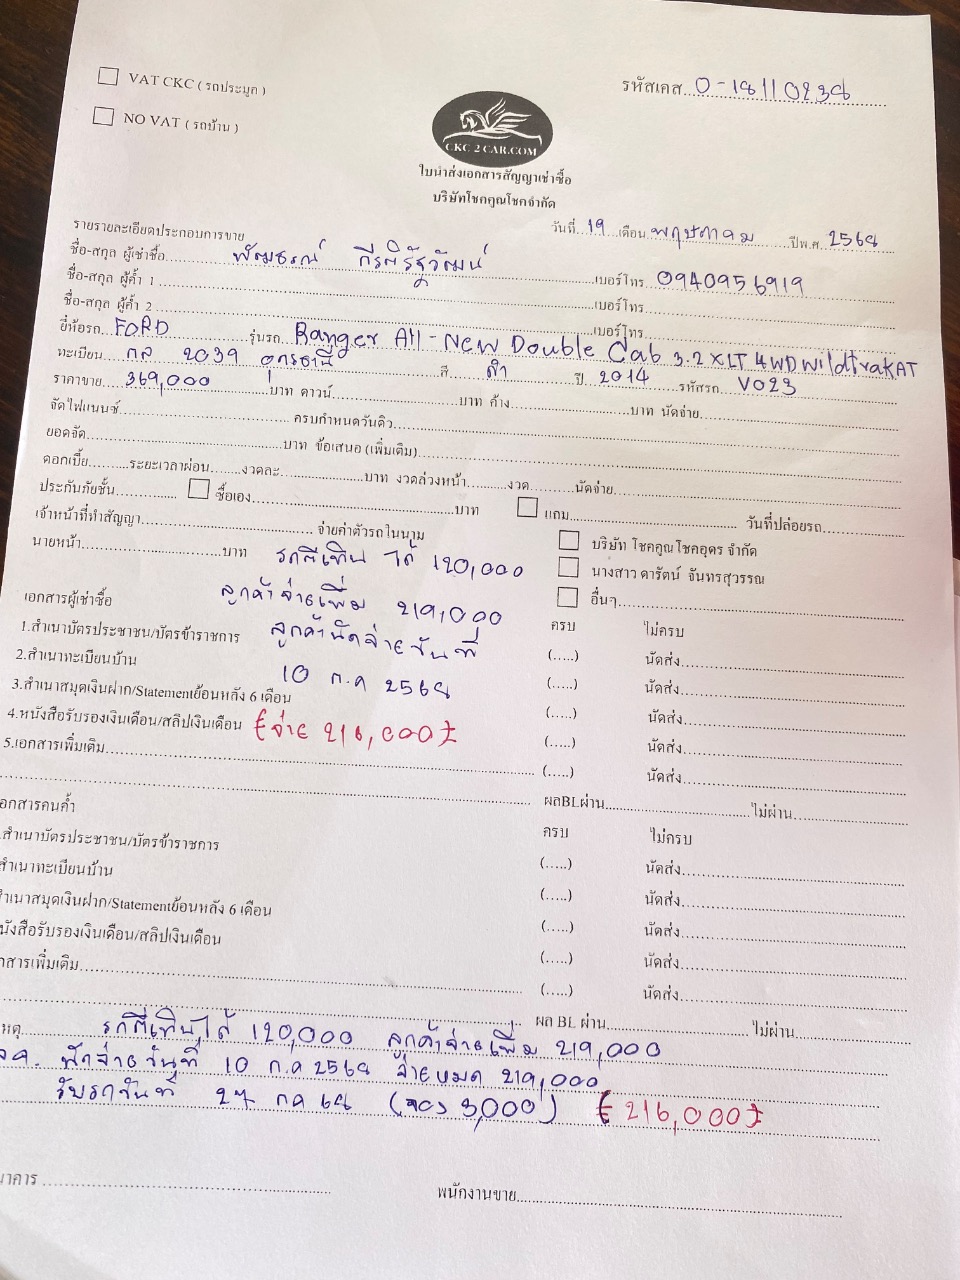 VAT CKC ( รถประมูล )
รหัสเคส...0-18110238
NO VAT ( รถบ้าน )
CKC 2 CAR.COM
ใบนำส่งเอกสารสัญญาเช่าซื้อ
บริษัทโชคคูณโชคจำกัด
วันที่..19...เดือน.พฤษภาคม......ปีพ.ศ. 2568
รายรายละเอียดประกอบการขาย
ชื่อ-สกุล ผู้เช่าซื้อ........ กีรติรัฐวัฒน์......เบอร์โทร 0940956919
ชื่อ-สกุล ผู้ค้ำ 1 ..........เบอร์โทร..........
ชื่อ-สกุล ผู้ค้ำ 2 ..........เบอร์โทร..........
ยี่ห้อรถ..FORD......รุ่นรถ.. Ranger All-New Double Cab 3.2 XLT 4WD Wildtrak AT
ทะเบียน กล 2039 อุดรธานี......สี.....ดำ......ปี. 2014....รหัสรถ....V023
ราคาขาย...369,000......บาท ดาวน์..........บาท ค้าง..........บาท นัดจ่าย..........
จัดไฟแนนซ์..........ครบกำหนดวันดิว..........
ยอดจัด..........บาท ข้อเสนอ (เพิ่มเติม)..........
ดอกเบี้ย.........ระยะเวลาผ่อน........งวดละ..........บาท งวดล่วงหน้า.........งวด..........นัดจ่าย..........
ประกันภัยชั้น.......... ซื้อเอง..........บาท แถม.......... วันที่ปล่อยรถ..........
เจ้าหน้าที่ทำสัญญา..........จ่ายค่าตัวรถในนาม
บริษัท โชคคูณโชคอุดร จำกัด
นายหน้า..........บาท รถตีเทิน ได้ 120,000
นางสาว ดารัตน์ จันทรสุวรรณ
ลูกค้าจ่ายเพิ่ม 219,000
อื่นๆ..........
เอกสารผู้เช่าซื้อ ครบ ไม่ครบ
ลูกค้านัดจ่ายวันที่
1.สำเนาบัตรประชาชน/บัตรข้าราชการ (.....) นัดส่ง..........
10 ก.ค 2568
2.สำเนาทะเบียนบ้าน (.....) นัดส่ง..........
3.สำเนาสมุดเงินฝาก/Statementย้อนหลัง 6 เดือน (.....) นัดส่ง..........
4.หนังสือรับรองเงินเดือน/สลิปเงินเดือน {จ่าย 216,000} (.....) นัดส่ง..........
5.เอกสารเพิ่มเติม.......... (.....) นัดส่ง..........
ผลBLผ่าน..........ไม่ผ่าน..........
อกสารคนค้ำ ครบ ไม่ครบ
.สำเนาบัตรประชาชน/บัตรข้าราชการ (.....) นัดส่ง..........
สำเนาทะเบียนบ้าน (.....) นัดส่ง..........
สำเนาสมุดเงินฝาก/Statementย้อนหลัง 6 เดือน (.....) นัดส่ง..........
นังสือรับรองเงินเดือน/สลิปเงินเดือน (.....) นัดส่ง..........
กสารเพิ่มเติม.......... (.....) นัดส่ง..........
ผล BL ผ่าน..........ไม่ผ่าน..........
หตุ.......... รถตีเทินได้ 120,000 ลูกค้าจ่ายเพิ่ม 219,000
นัดจ่ายวันที่ 10 ก.ค 2568 จ่ายหมด 219,000
รับรถวันที่ 27 กค 68 (จอง 3,000) {216,000}
นาคาร ..........
พนักงานขาย..........